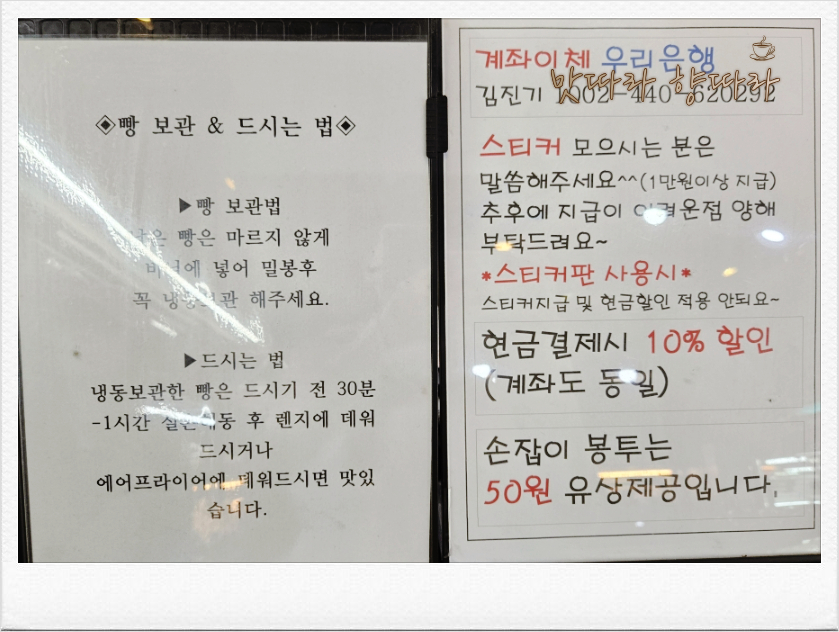 ◈빵 보관 & 드시는 법◈
▶빵 보관법
남은 빵은 마르지 않게
비닐에 넣어 밀봉후
꼭 냉동보관 해주세요.
▶드시는 법
냉동보관한 빵은 드시기 전 30분
-1시간 실온해동 후 렌지에 데워
드시거나
에어프라이어에 데워드시면 맛있
습니다.
계좌이체 우리은행
맛따라 향따라
김진기 1002-440-620292
스티커 모으시는 분은
말씀해주세요^^(1만원이상 지급)
추후에 지급이 어려운점 양해
부탁드려요~
*스티커판 사용시*
스티커지급 및 현금할인 적용 안되요~
현금결제시 10% 할인
(계좌도 동일)
손잡이 봉투는
50원 유상제공입니다.